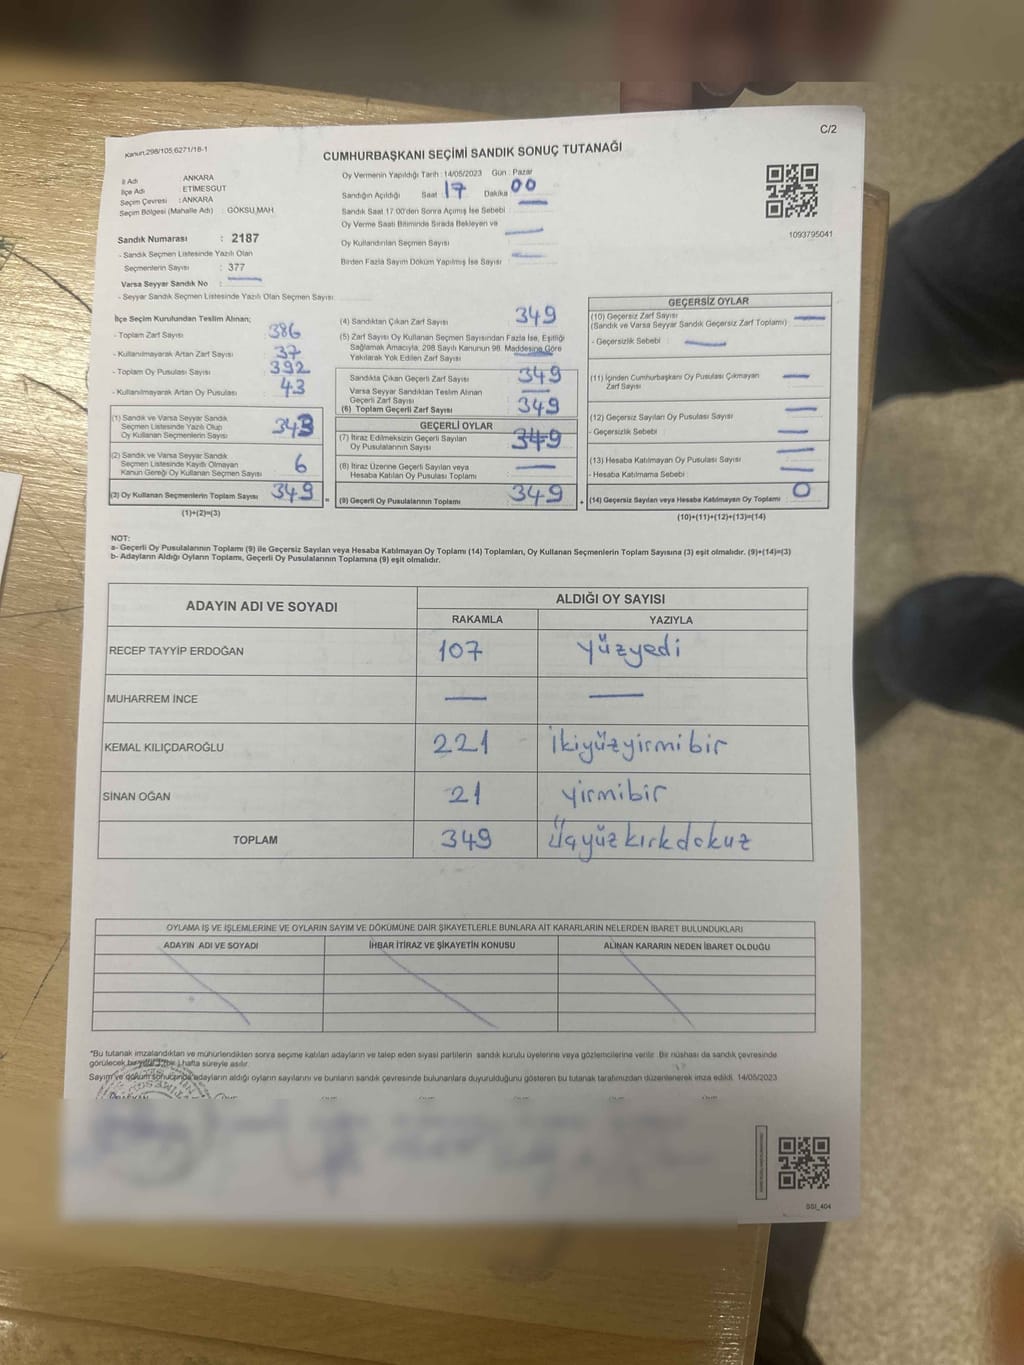 C/2
Kanun:298/105,6271/18-1
CUMHURBAŞKANI SEÇİMİ SANDIK SONUÇ TUTANAĞI
İl Adı ANKARA
İlçe Adı ETİMESGUT
Seçim Çevresi : ANKARA
Seçim Bölgesi (Mahalle Adı) : GÖKSU MAH.
Sandık Numarası : 2187
- Sandık Seçmen Listesinde Yazılı Olan
Seçmenlerin Sayısı : 377
Varsa Seyyar Sandık No :
- Seyyar Sandık Seçmen Listesinde Yazılı Olan Seçmen Sayısı
Oy Vermenin Yapıldığı Tarih : 14/05/2023 Gün : Pazar
Sandığın Açıldığı Saat 17 Dakika 00
Sandık Saat 17.00'den Sonra Açımış İse Sebebi
Oy Verme Saati Bitiminde Sırada Bekleyen ve
Oy Kullandırılan Seçmen Sayısı
Birden Fazla Sayım Döküm Yapılmış İse Sayısı
1093795041
İlçe Seçim Kurulundan Teslim Alınan;
- Toplam Zarf Sayısı 386
- Kullanılmayarak Artan Zarf Sayısı 37
- Toplam Oy Pusulası Sayısı 392
- Kullanılmayarak Artan Oy Pusulası 43
(1) Sandık ve Varsa Seyyar Sandık
Seçmen Listesinde Yazılı Olup
Oy Kullanan Seçmenlerin Sayısı 343
(2) Sandık ve Varsa Seyyar Sandık
Seçmen Listesinde Kayıtlı Olmayan
Kanun Gereği Oy Kullanan Seçmen Sayısı 6
(3) Oy Kullanan Seçmenlerin Toplam Sayısı 349 =
(1)+(2)=(3)
(4) Sandıktan Çıkan Zarf Sayısı 349
(5) Zarf Sayısı Oy Kullanan Seçmen Sayısından Fazla İse, Eşitliği
Sağlamak Amacıyla, 298 Sayılı Kanunun 98. Maddesine Göre
Yakılarak Yok Edilen Zarf Sayısı
Sandıkta Çıkan Geçerli Zarf Sayısı 349
Varsa Seyyar Sandıktan Teslim Alınan
Geçerli Zarf Sayısı
(6) Toplam Geçerli Zarf Sayısı 349
GEÇERLİ OYLAR
(7) İtiraz Edilmeksizin Geçerli Sayılan
Oy Pusulasının Sayısı 349
(8) İtiraz Üzerine Geçerli Sayılan veya
Hesaba Katılan Oy Pusulası Toplamı
(9) Geçerli Oy Pusulalarının Toplamı 349 +
GEÇERSİZ OYLAR
(10) Geçersiz Zarf Sayısı
(Sandık ve Varsa Seyyar Sandık Geçersiz Zarf Toplamı)
- Geçersizlik Sebebi :
(11) İçinden Cumhurbaşkanı Oy Pusulası Çıkmayan
Zarf Sayısı
(12) Geçersiz Sayılan Oy Pusulası Sayısı
- Geçersizlik Sebebi :
(13) Hesaba Katılmayan Oy Pusulası Sayısı
- Hesaba Katılmama Sebebi :
(14) Geçersiz Sayılan veya Hesaba Katılmayan Oy Toplamı 0
(10)+(11)+(12)+(13)=(14)
NOT:
a- Geçerli Oy Pusulalarının Toplamı (9) ile Geçersiz Sayılan veya Hesaba Katılmayan Oy Toplamı (14) Toplamları, Oy Kullanan Seçmenlerin Toplam Sayısına (3) eşit olmalıdır. (9)+(14)=(3)
b- Adayların Aldığı Oyların Toplamı, Geçerli Oy Pusulalarının Toplamına (9) eşit olmalıdır.
ADAYIN ADI VE SOYADI ALDIĞI OY SAYISI
RAKAMLA YAZIYLA
RECEP TAYYİP ERDOĞAN 107 yüzyedi
MUHARREM İNCE
KEMAL KILIÇDAROĞLU 221 ikiyüzyirmibir
SİNAN OĞAN 21 yirmibir
TOPLAM 349 Üçyüzkırkdokuz
OYLAMA İŞ VE İŞLEMLERİNE VE OYLARIN SAYIM VE DÖKÜMÜNE DAİR ŞİKAYETLERLE BUNLARA AİT KARARLARIN NELERDEN İBARET BULUNDUKLARI
ADAYIN ADI VE SOYADI İHBAR İTİRAZ VE ŞİKAYETİN KONUSU ALINAN KARARIN NEDEN İBARET OLDUĞU
*Bu tutanak imzalandıktan ve mühürlendikten sonra seçime katılan adayların ve talep eden siyasi partilerin sandık kurulu üyelerine veya gözlemcilerine verilir. Bir nüshası da sandık çevresinde
görülecek bir yere bir hafta süreyle asılır.
Sayım ve döküm sonucunda adayların aldığı oyların sayılarını ve bunların sandık çevresinde bulunanlara duyurulduğunu gösteren bu tutanak tarafımızdan düzenlenerek imza edildi. 14/05/2023
SSI_404